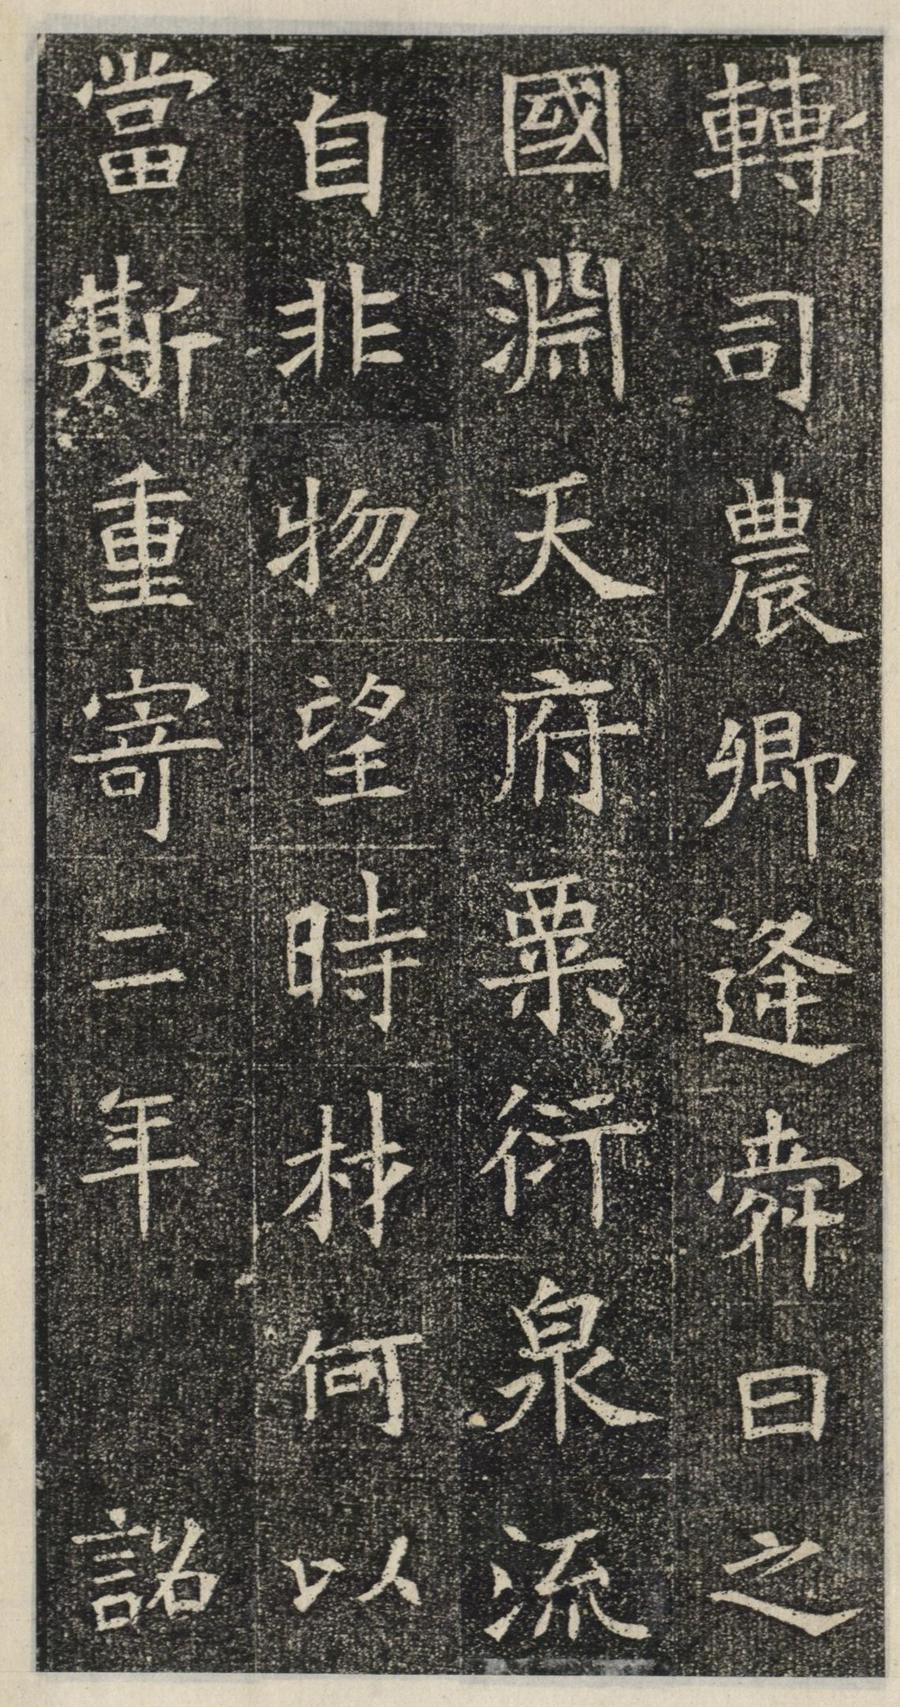 轉司農卿逄舜日之
國淵天府粟衍泉流
自非物望時材何以
當斯重寄二年 詔